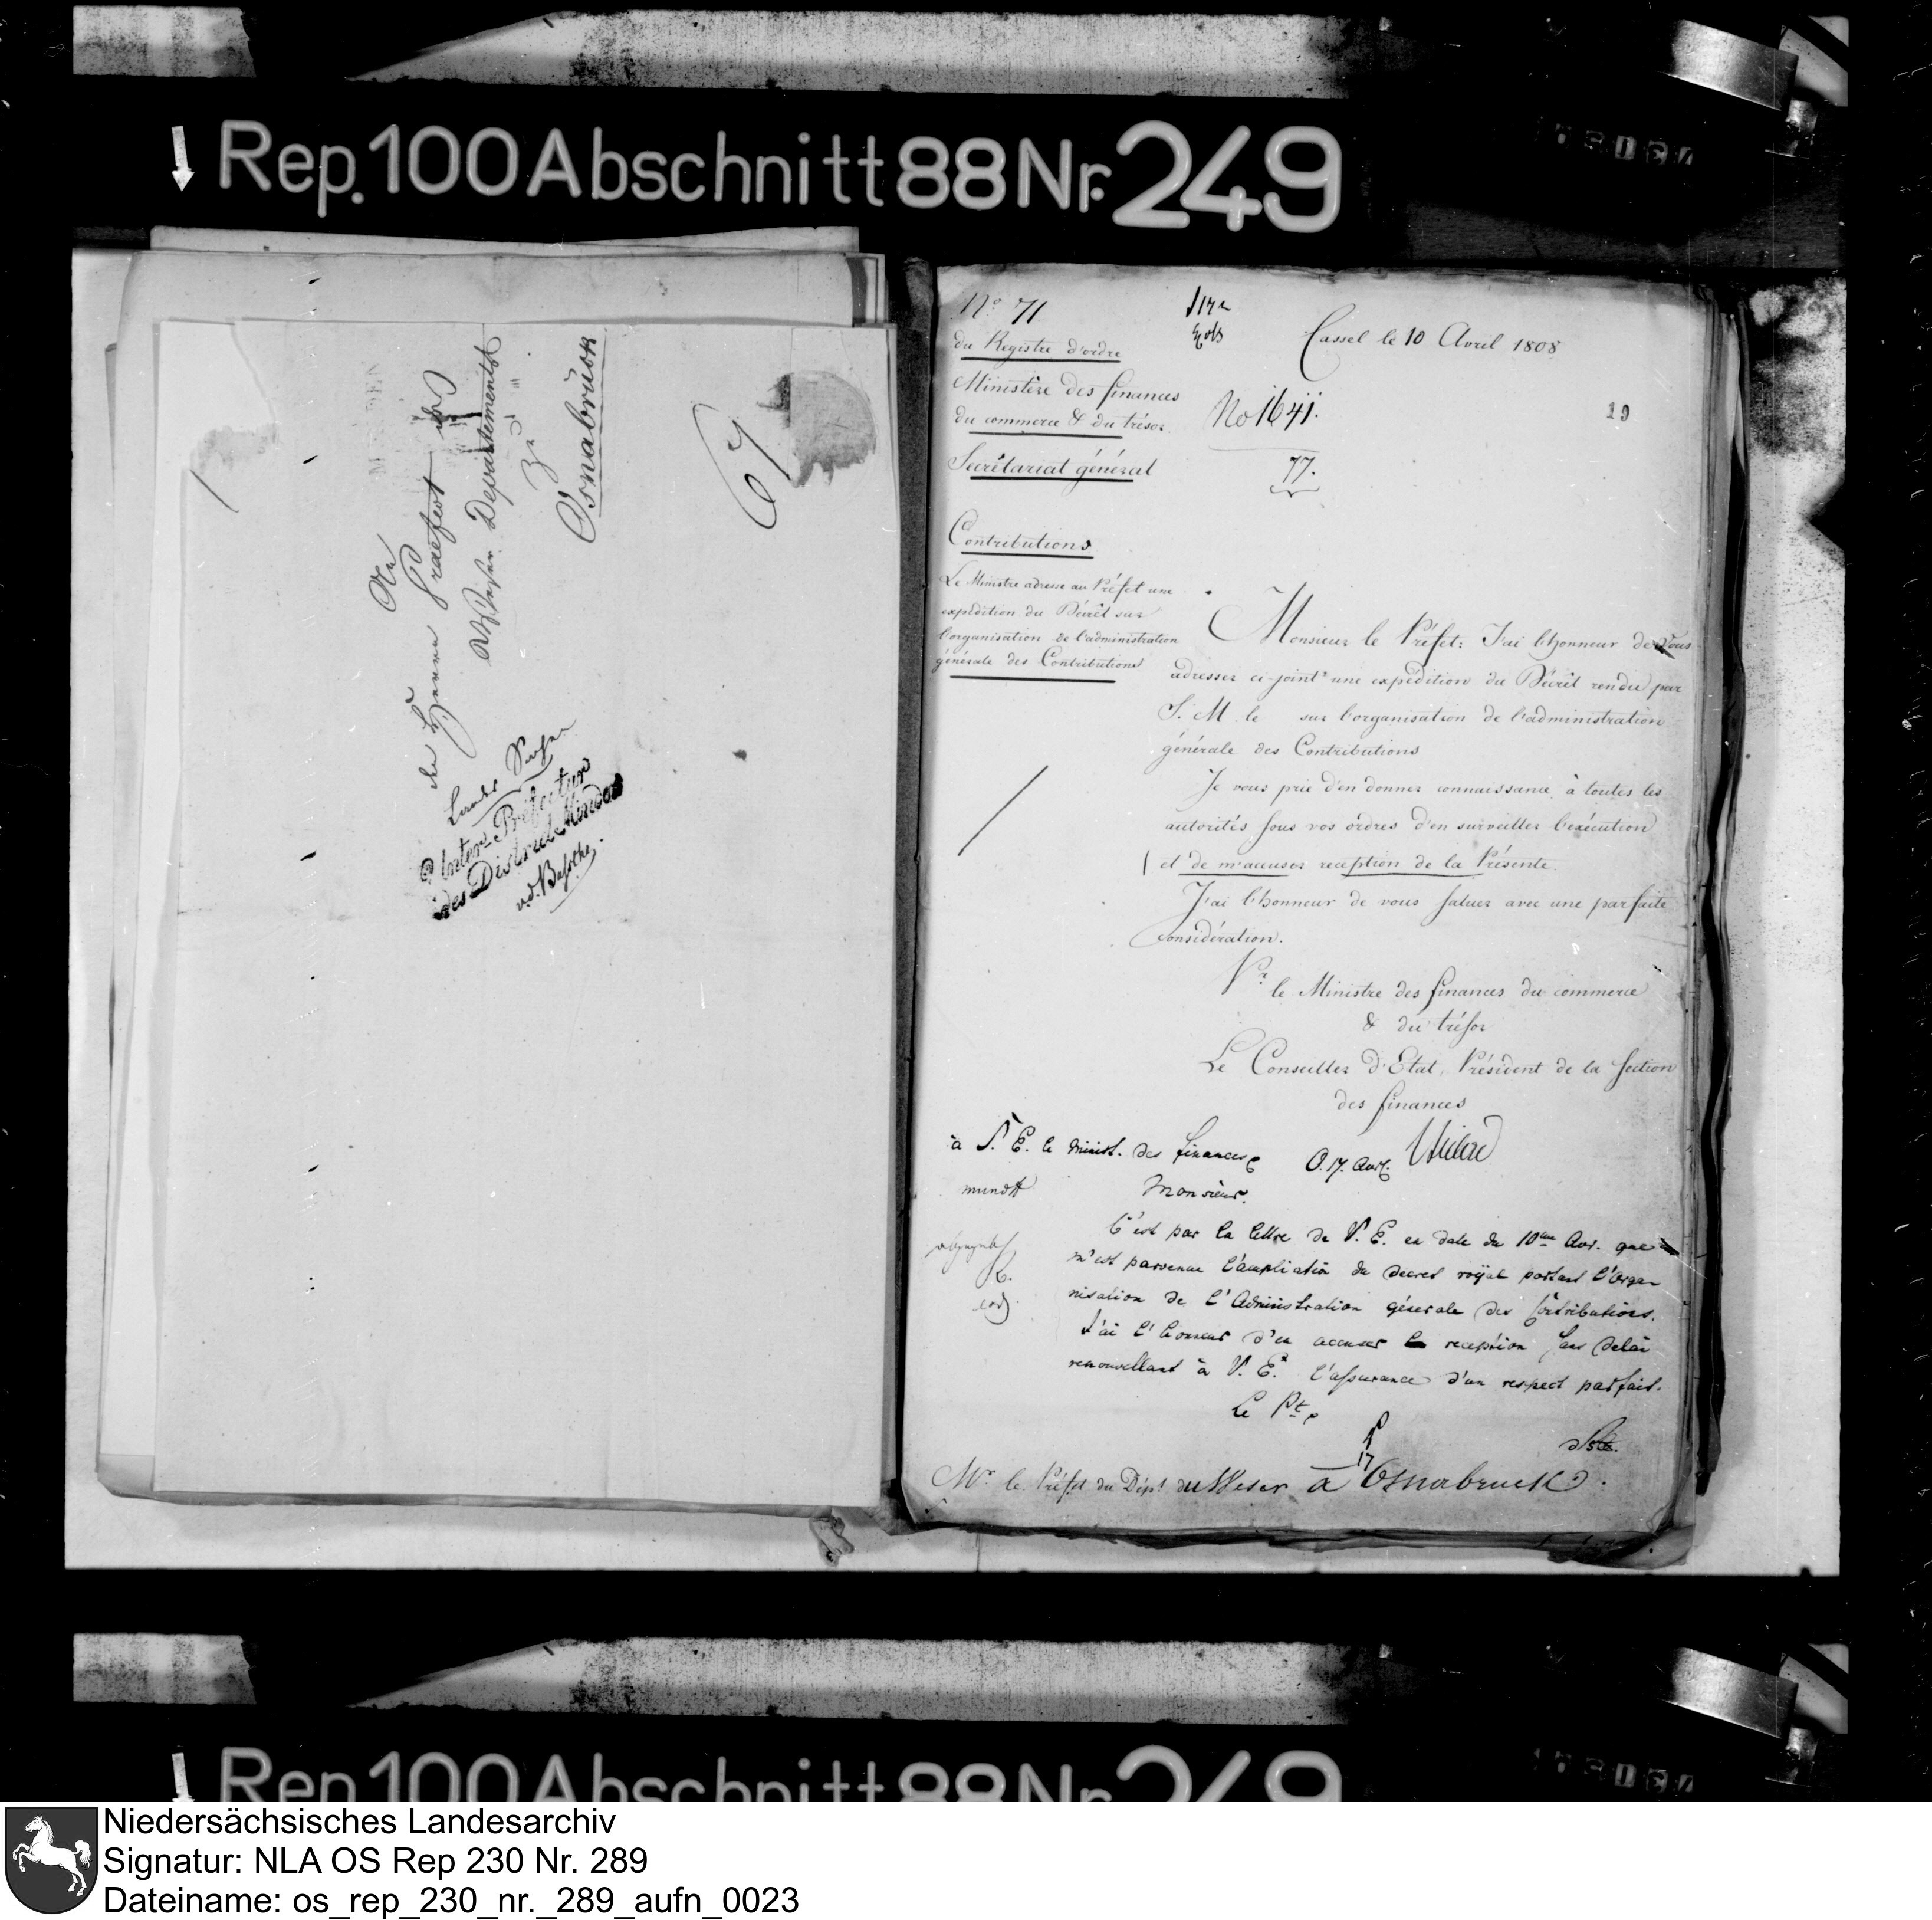 Rep. 100 Abschnitt 88 Nr. 249
An
den Herrn Praefect des
Weser Departements
Zu
Osnabrück
67
Landes Sachen
Unter Präfectur
des Districts Minden
MINDEN
No 71
du Registre d'ordre
Ministère des finances
du commerce & du trésor
Secrétariat général
Cassel le 10 Avril 1808
No 1641.
77.
19
Contributions
Le Ministre adresse au Préfet une
expédition du Décrêt sur
l'organisation de l'administration
générale des Contributions
Monsieur le Préfet: J'ai l'honneur de Vous
adresser ci-joint une expédition du Décrêt rendu par
S. M. le sur l'organisation de l'administration
générale des Contributions
Je vous prie d'en donner connaissance à toutes les
autorités sous vos ordres d'en surveiller l'exécution
et de m'accuser reception de la Présente.
J'ai l'honneur de vous saluer avec une parfaite
considération.
Pr le Ministre des finances du commerce
& du trésor
Le Conseiller d'Etat, Président de la section
des finances
à S. E. le minist. des finances
O. 17. Avr.
mundt
Monsieur.
C'est par la lettre de V. E. en date du 10me Avr. que
m'est parvenue l'ampliation du decret roÿal portant l'Orga-
nisation de l'Administration génerale des Contributions.
J'ai l'honneur d'en accuser la reception sans delai
renouvellant à V. E. l'assurance d'un respect parfait.
Le Pt
17
Mr le Préfet du Dépt du Weser à Osnabruck.
Rep. 100 Abschnitt 88 Nr. 249
Niedersächsisches Landesarchiv
Signatur: NLA OS Rep 230 Nr. 289
Dateiname: os_rep_230_nr._289_aufn_0023